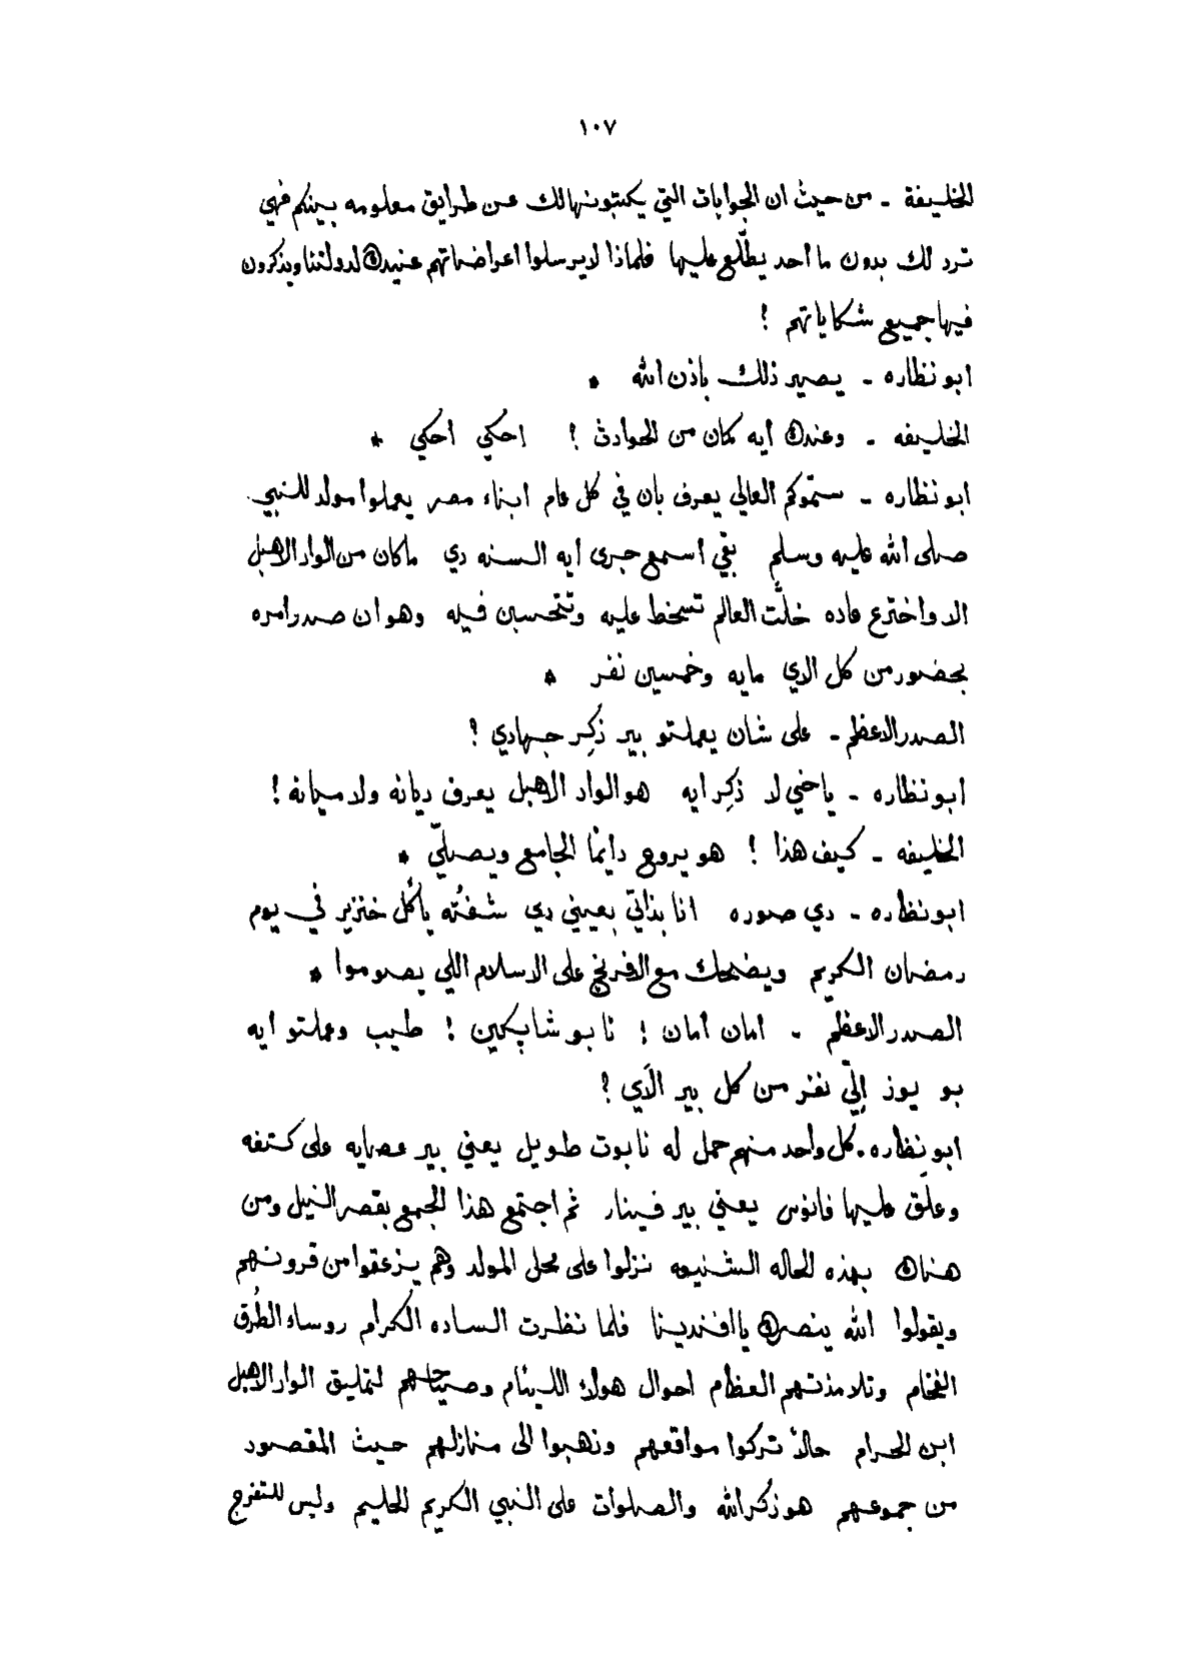 ١٠٧
الخليفة - من حيث ان الجوابات التي يكتبونها لك عن طرايق معلومه بينكم فهي
ترد لك بدون ما أحد يطّلع عليها فلماذا لا يرسلوا اعراضاتهم عنيدك لدولتنا ويذكرون
فيها جميع شكاياتهم !
ابو نظاره - يصير ذلك بإذن الله *
الخليفه - وعندك أيه كمان من الحوادث ؟ احكي أحكي *
ابو نظاره - سموّكم العالي يعرف بان في كل عام ابناء مصر يعملوا مولد للنبي
صلى الله عليه وسلم بقي أسمع جرى أيه السنه دي ما كان من الواد الاهبل
الا واخترع عاده خلّت العالم تسخط عليه وتتحسبن فيه وهو ان صدر أمره
بحضور من كل الاي مايه وخمسين نفر *
الصدر الاعظم - على شان يعملتو بير ذكِر جهادي ؟
ابو نظاره - ياخي لا ذكِر ايه هو الواد الاهبل يعرف ديانه ولا ميانه !
الخليفه - كيف هذا ! هو يروح دائمًا الجامع ويصلّي *
ابو نظاره - دي صوره انا بذاتي بعيني دي شفتُه يأكُل خنزير في يوم
رمضان الكريم ويضحك مع الافرنج على الاسلام اللي يصوموا *
الصدر الاعظم - امان أمان ! نا بو شاپكين ! طيب وعملتو ايه
بو يوز إلّي نفر من كل بير الآي ؟
ابو نظاره . كل واحد منهم حمل له نابوت طويل يعني بير عصايه على كتفه
وعلّق عليها فانوس يعني بير فينار ثم اجتمع هذا الجمع بقصر النيل ومن
هناك بهذه الحاله الشنيعه نزلوا على محل المولد وهم يزعقوا من قرونهم
ويقولوا الله ينصرك يا افندينا فلما نظرت الساده الكرام روساء الطُرق
الفخام وتلامذتهم العظام احوال هولاء اللئام وصياحهم لتمليق الواد الاهبل
ابن الحرام حالاً تركوا مواقعهم وذهبوا الى منازلهم حيث المقصود
من جموعهم هو ذكُر الله والصلوات على النبي الكريم الحليم وليس للتفرج